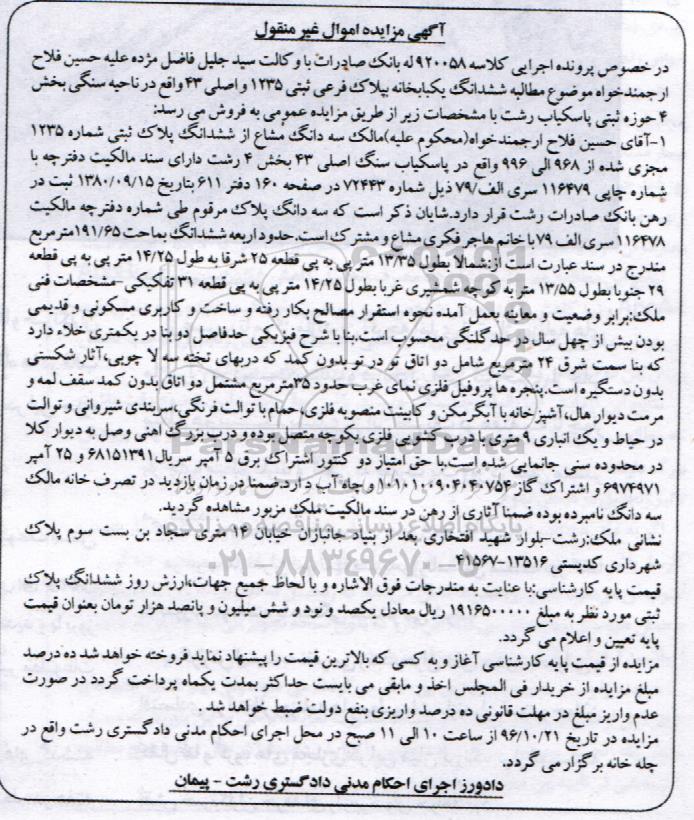 آگهی مزایده اموال غیر منقول
در خصوص پرونده اجرایی کلاسه ۹۲۰۰۵۸ له بانک صادرات با وکالت سید جلیل فاضل مژده علیه حسین فلاح
ارجمندخواه موضوع مطالبه ششدانگ یکبابخانه بپلاک فرعی ثبتی ۱۲۳۵ و اصلی ۴۳ واقع در ناحیه سنگی بخش
۴ حوزه ثبتی پاسکیاب رشت با مشخصات زیر از طریق مزایده عمومی به فروش می رسد:
۱-آقای حسین فلاح ارجمندخواه(محکوم علیه)مالک سه دانگ مشاع از ششدانگ پلاک ثبتی شماره ۱۲۳۵
مجزی شده از ۹۶۸ الی ۹۹۶ واقع در پاسکیاب سنگ اصلی ۴۳ بخش ۴ رشت دارای سند مالکیت دفترچه با
شماره چاپی ۱۱۶۴۷۹ سری الف/۷۹ ذیل شماره ۷۲۴۴۳ در صفحه ۱۶۰ دفتر ۶۱۱ بتاریخ ۱۳۸۰/۰۹/۱۵ ثبت در
رهن بانک صادرات رشت قرار دارد.شایان ذکر است که سه دانگ پلاک مرقوم طی شماره دفترچه مالکیت
۱۱۶۴۷۸ سری الف ۷۹ با خانم هاجر فکری مشاع و مشترک است.حدود اربعه ششدانگ بمساحت ۱۹۱/۶۵ مترمربع
مندرج در سند عبارت است از:شمالا بطول ۱۳/۳۵ متر پی به پی قطعه ۲۵ شرقا به طول ۱۴/۲۵ متر پی به پی قطعه
۲۹ جنوبا بطول ۱۳/۵۵ متر به کوچه شمشیری غربا بطول ۱۴/۲۵ متر پی به پی قطعه ۳۱ تفکیکی-مشخصات فنی
ملک:برابر وضعیت و معاینه بعمل آمده نحوه استقرار مصالح بکار رفته و ساخت و کاربری مسکونی و قدیمی
بودن بیش از چهل سال در حد کلنگی محسوب است.بنا بشرح فیزیکی حدفاصل دو بنا در یکمتری خلاء دارد
که بنا سمت شرق ۲۴ مترمربع شامل دو اتاق تو در تو بدون کمد که دربهای تخته سه لا چوبی،آثار شکستی
بدون دستگیره است.پنجره ها پروفیل فلزی نمای غرب حدود ۳۵مترمربع مشتمل دو اتاق بدون کمد سقف لمه و
مرمت دیوار هال،آشپزخانه با آبگرمکن و کابینت منصوبه فلزی،حمام با توالت فرنگی،سربندی شیروانی و توالت
در حیاط و یک انباری ۹ متری با درب کشویی فلزی بکوچه متصل بوده و درب بزرگ اهنی وصل به دیوار کلا
در محدوده سنی جانمایی شده است.با حق امتیاز دو کنتور اشتراک برق ۵ آمپر سریال ۶۸۱۵۱۳۹۱ و ۲۵ آمپر
۶۹۷۴۹۷۱ و اشتراک گاز و چاه آب دارد.ضمنا در زمان بازدید در تصرف خانه مالک
سه دانگ نامبرده بوده ضمنا آثاری از رهن در سند مالکیت ملک مزبور مشاهده گردید.
نشانی ملک:رشت-بلوار شهید افتخاری بعد از بنیاد جانبازان خیابان ۱۴ متری سجاد بن بست سوم پلاک
شهرداری کدپستی ۱۳۵۱۶-۴۱۵۶۷
قیمت پایه کارشناسی:با عنایت به مندرجات فوق الاشاره و با لحاظ جمیع جهات،ارزش روز ششدانگ پلاک
ثبتی مورد نظر به مبلغ ۱۹۱۶۵۰۰۰۰۰ ریال معادل یکصد و نود و شش میلیون و پانصد هزار تومان بعنوان قیمت
پایه تعیین و اعلام می گردد.
مزایده از قیمت پایه کارشناسی آغاز و به کسی که بالاترین قیمت را پیشنهاد نماید فروخته خواهد شد ده درصد
مبلغ مزایده از خریدار فی المجلس اخذ و مابقی می بایست حداکثر بمدت یکماه پرداخت گردد در صورت
عدم واریز مبلغ در مهلت قانونی ده درصد واریزی بنفع دولت ضبط خواهد شد.
مزایده در تاریخ ۹۶/۱۰/۲۱ از ساعت ۱۰ الی ۱۱ صبح در محل اجرای احکام مدنی دادگستری رشت واقع در
چله خانه برگزار می گردد.
دادورز اجرای احکام مدنی دادگستری رشت - پیمان
ParsNamadData
پایگاه اطلاع رسانی مناقصه و مزایده
۰۲۱-۸۸۳۴۹۶۷۰-۵